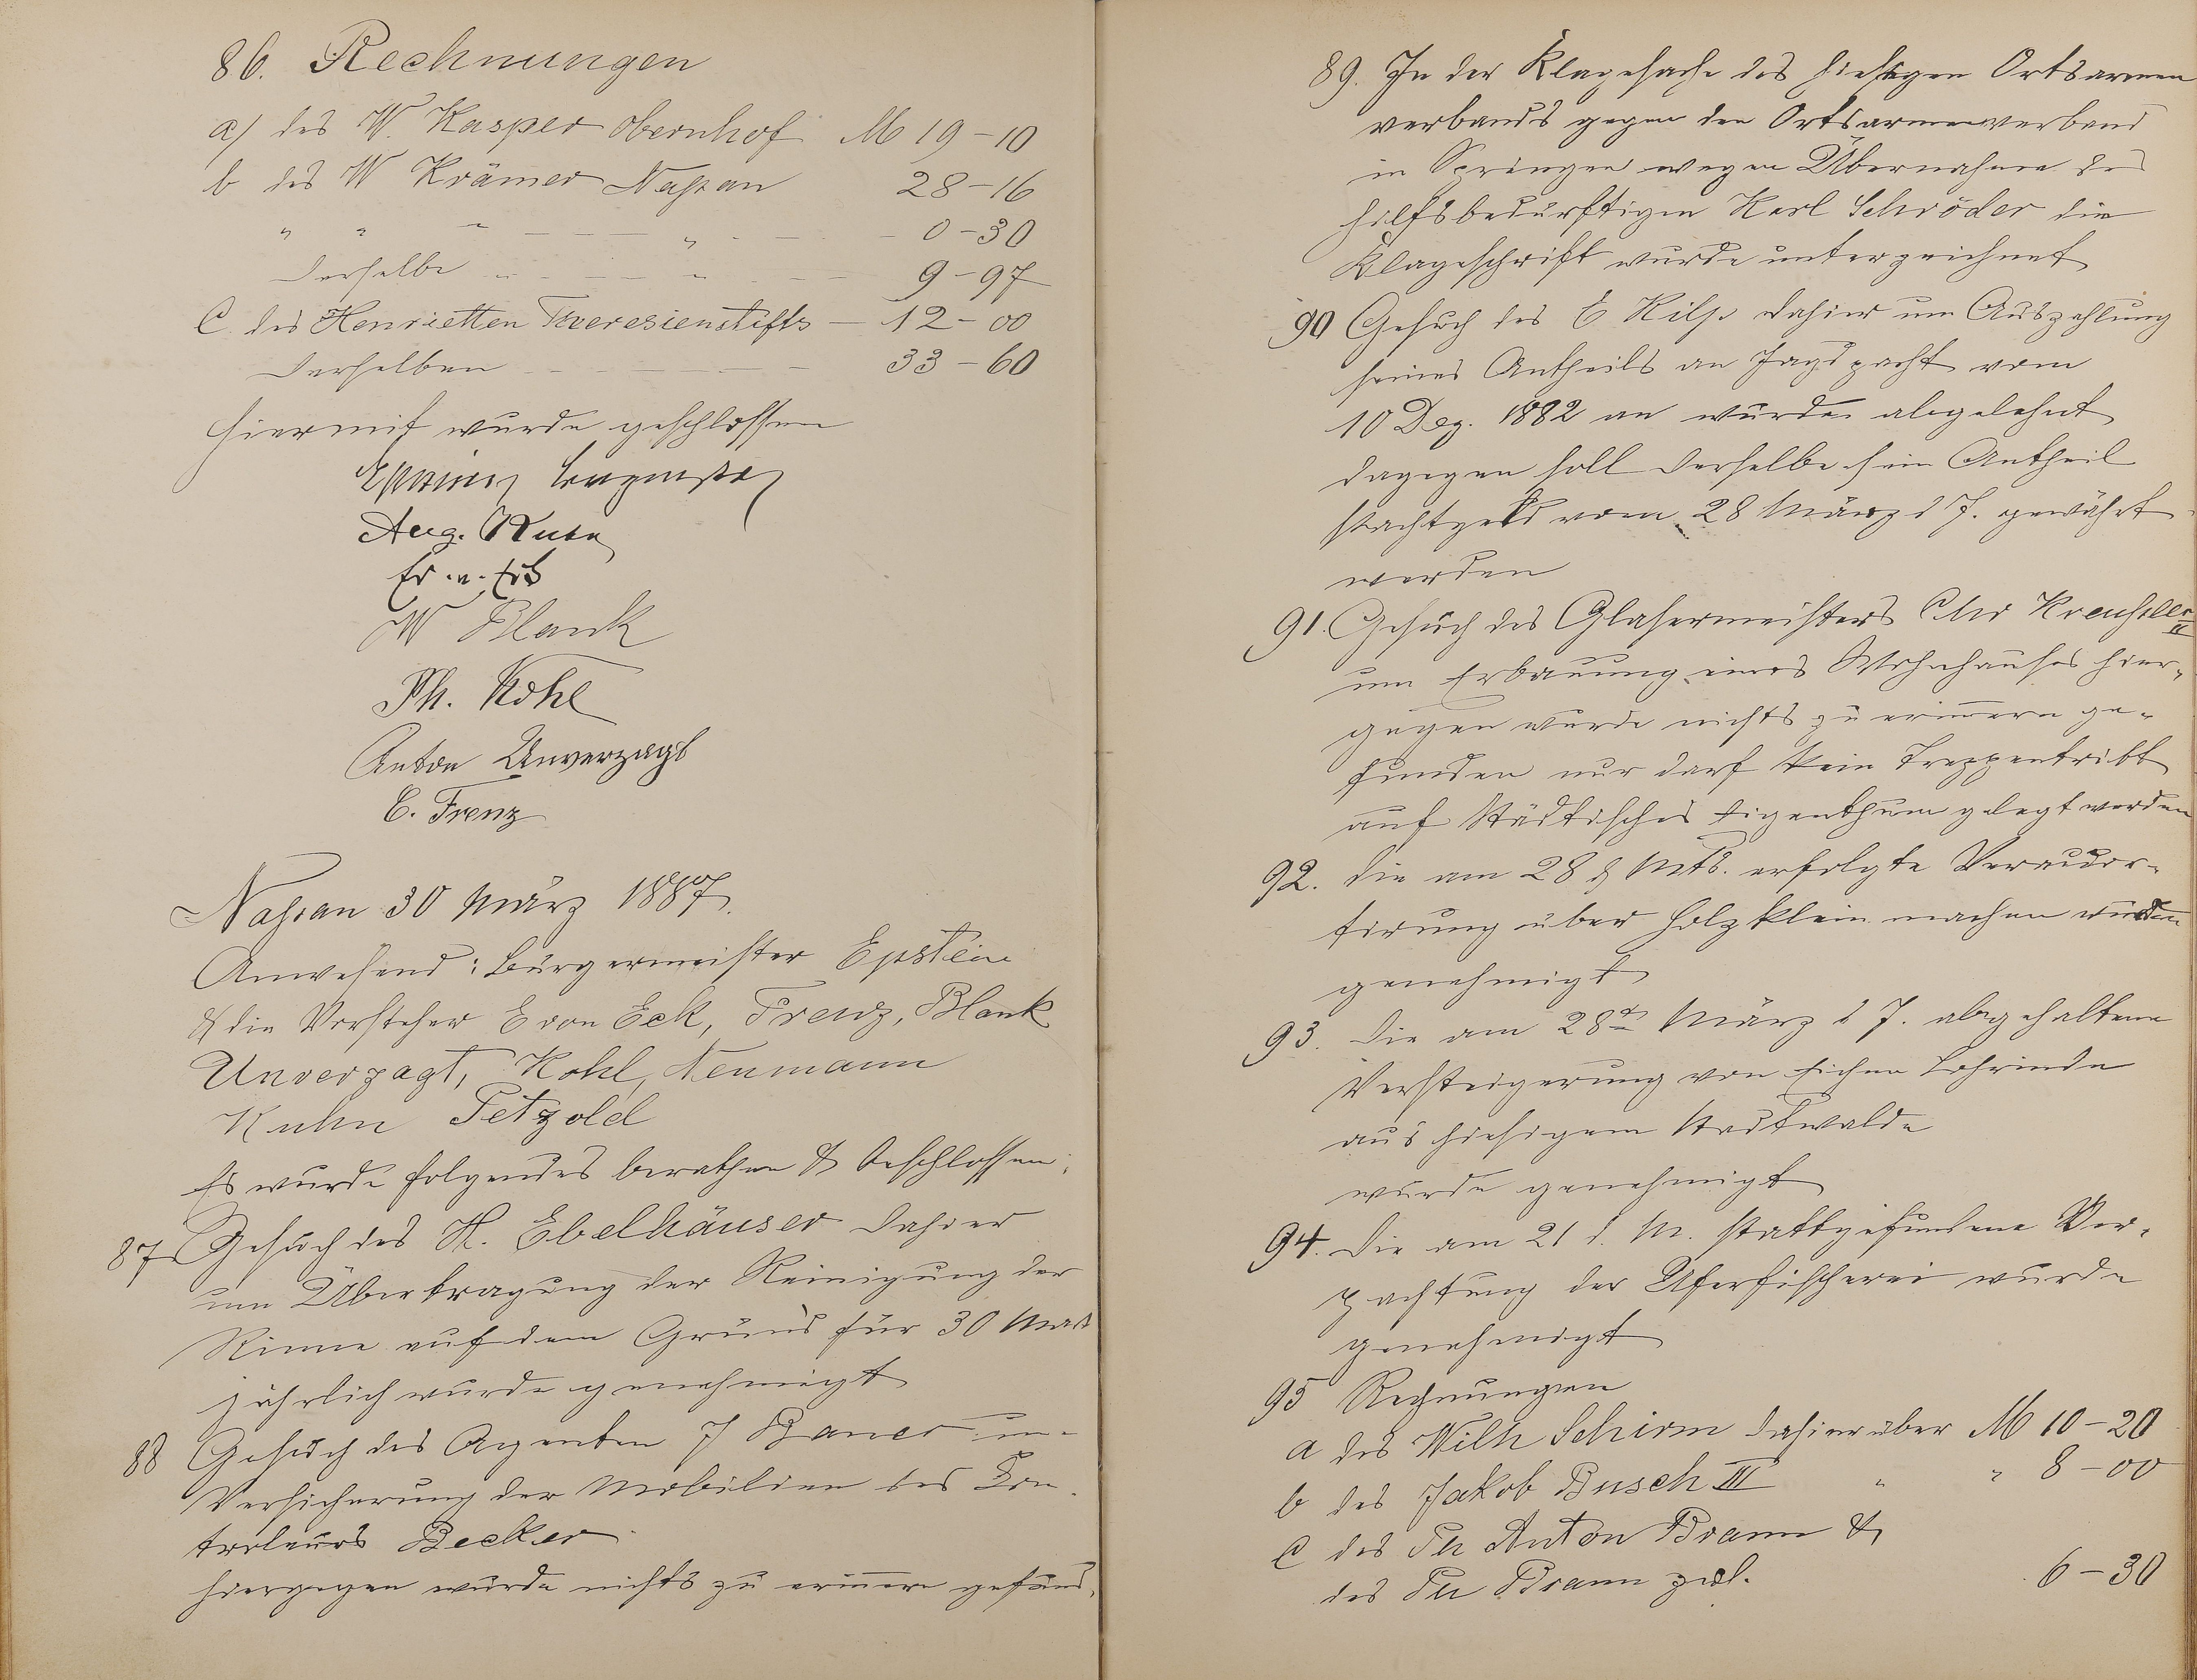 86. Rechnungen
a) des W. Kasper Obernhof M 19-10
b des W Krämer Nassau 28-16
" " " 0-30
Derselbe " 9-97
C. des Henrietten Theresienstifts 12-00
Derselben 33-60
Hiermit wurde geschlossen
Aug. Kuhn
W Blank
Ph. Kohl
Anton Unverzagt
C. Frenz
Nassau 30 März 1887.
Anwesend: Bürgermeister Epstein
& die Vorsteher E von Eck, Frenz, Blank
Unverzagt, Kohl, Neumann
Kuhn Petzold
Es wurde folgendes berathen & beschlossen:
87 Gesuch des H. Ebelhäuser dahier
um Übertragung der Reinigung der
Rinne auf dem Grund für 30 Mark
jährlich wurde genehmigt
88 Gesuch des Agenten J Bauer um
Versicherung der Mobilien des Con-
troleurs Becker
hiergegen wurde nichts zu erinnern gefund.
89. In der Klagesache des hiesigen Ortsarmen
verbands gegen den Ortsarmenverband
in Springen wegen Übernahme des
hilfsbedürftigen Karl Schröder die
Klageschrift wurde unterzeichnet
90 Gesuch des E Kilp dahier um Auszahlung
seines Antheils an Jagdpacht vom
10 Dez. 1882 an wurde abgelehnt
dagegen soll derselbe sein Antheil
Pachtgeld vom 28 März d J. gewährt
werden
91. Gesuch des Glasermeisters Chr Kreusler II
um Erbauung eines Wohnhauses hier-
gegen wurde nichts zu erinnern ge-
funden nur darf kein Treppentritt
auf Städtisches Eigenthum gelegt werden
92. Die am 28 d Mts. erfolgte Veraccor-
tirung über Holzklein machen wurde
genehmigt
93. Die am 28ten März d J. abgehaltene
Versteigerung von Eichen Lohrinde
aus hiesigem Stadtwalde
wurde genehmigt
94. Die am 21 d. M. stattgefundene Ver-
pachtung der Uferfischerei wurde
genehmigt
95 Rechnungen
a des Wilh Schirm dahier über M 10-20
b des Jakob Busch III " " 8-00
C des Ph Anton Braun &
des Ph Braun 6-30